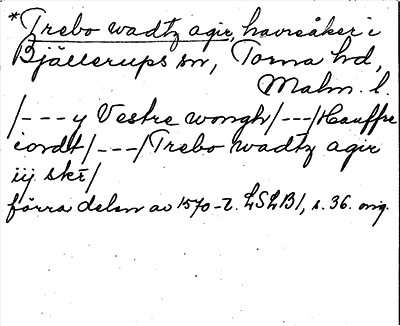 *Trebo wadtz agir, havreåker i
Bjällerups sn, Torna hd,
Malm. l.
/---y Vestre wongh/---/Hauffre
iordt/---/Trebo wadtz agir
iij skr/
förra delen av 1570-t. LSLB1, s. 36. orig.